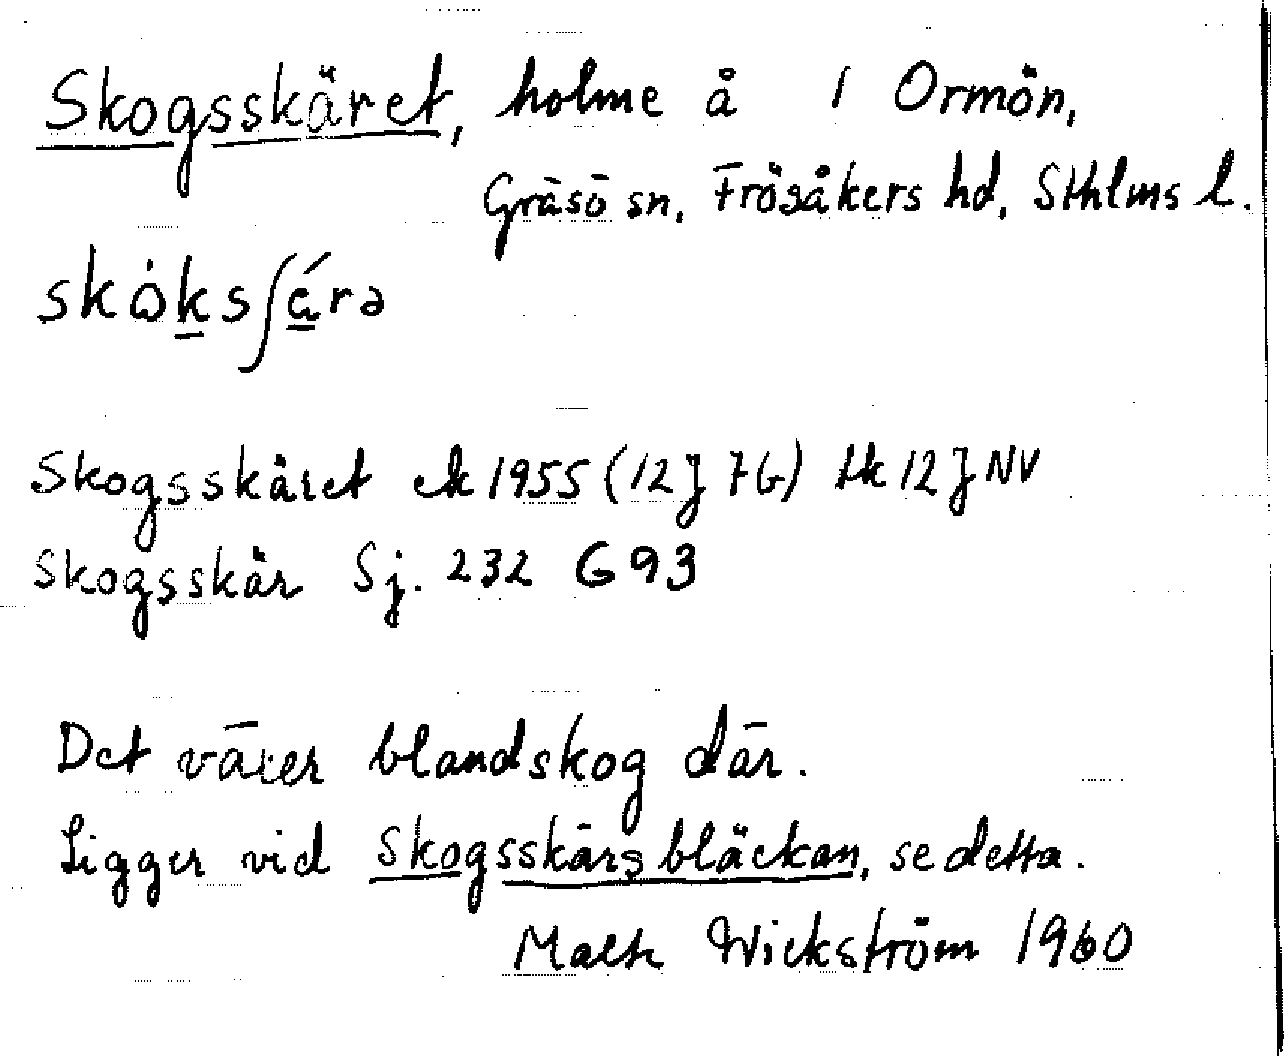 Skogsskäret, holme å 1 Ormön,
Gräsö sn, Frösåkers hd, Sthlms l.
skȯksʃä́rə
Skogsskäret ek 1955 (12J 7G) tk 12J NV
Skogsskär Sj. 232 G93
Det växer blandskog där.
Ligger vid Skogsskärsbläckan, se detta.
Wickström 1960